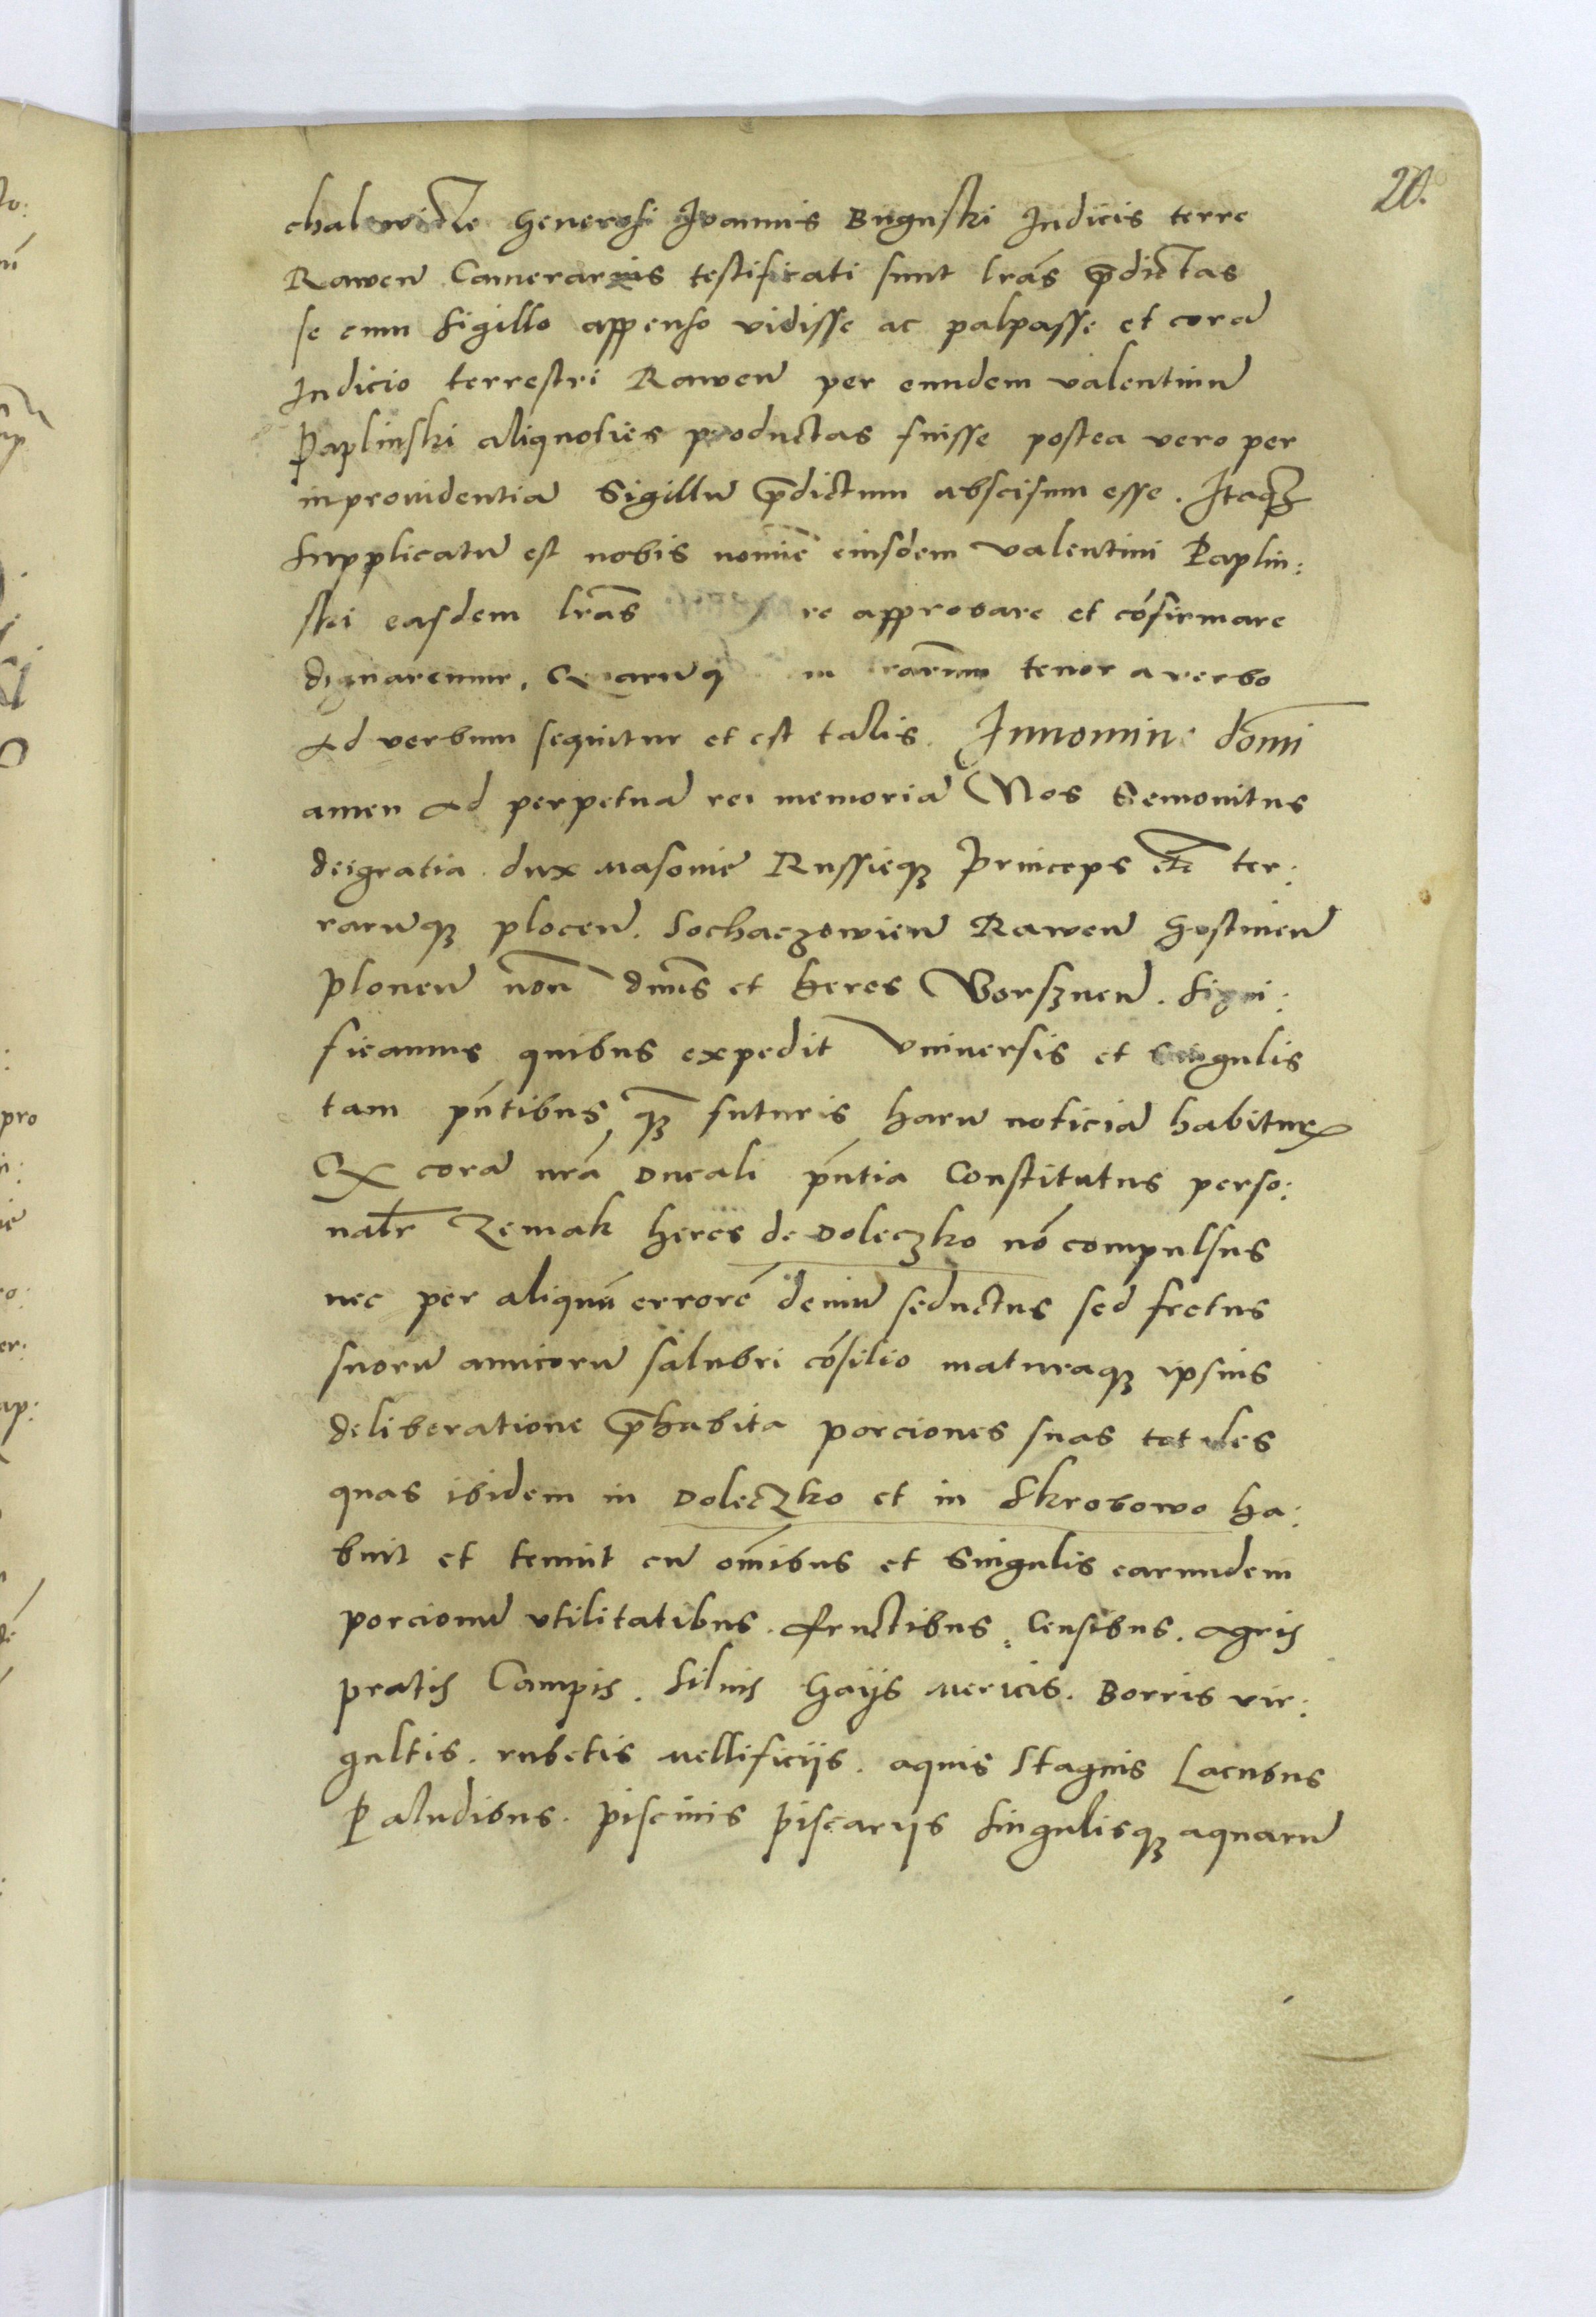 20.
chalowicze Generosi Joannis Buguski Judicis terre
Rawen̄ Camerarius testificati sunt lrãs p̄dictas
se cum sigillo appenso vidisse ac palpasse et corã
Judicio terrestri Rawen̄ per eundem valentinū
Paplinski aliquoties productas fuisse postea vero per
inprouidentiã Sigillū p̄dictum abscisum esse. Itaqȝ
supplicatū est nobis nomīe eiusdem valentini Paplin:
ski easdem lrãs re approbare et cõfirmare
dignaremur. Quarū tenor a verbo
Ad verbum sequitur et est talis. Innomine domī
amen Ad perpetuã rei memoriã Nos Semouitus
deigratia dux Masouie Russieqȝ Princeps etc̄ ter:
rarūqȝ plocen̄. Sochaczowien̄ Rawen̄ Gostinen̄
Plonen̄ non̄ dnūs et heres Vorsznen̄. Signi:
ficamus quibus expedit Vniuersis et Singulis
tam pn̄tibus, qȝ̄ futuris harū noticiã habiturꝫ
Qꝫ corã nrã Ducali pn̄tia Constitutus perso:
nalr̄ Zemak heres de Doleczko nõ compulsus
nec per aliquū errorē deuiū seductus sed fretus
suorū amicorū salubri cõsilio maturaqȝ ipsius
deliberatione p̄habita porciones suas totales
quas ibidem in Doleczko et in Skrobowo ha:
buit et tenuit cū om̄ibus et Singulis earundem
porcionū vtilitatibus. fructibus. Censibus. Agris
pratis Campis. Siluis Gaijs Mericis. Borris vir:
gultis. rubetis Mellificijs. aquis Stagnis Lacubus
Paludibus. piscinis piscarijs singulisqȝ aquarū